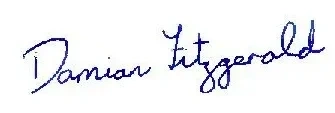 Damian Fitzgerald